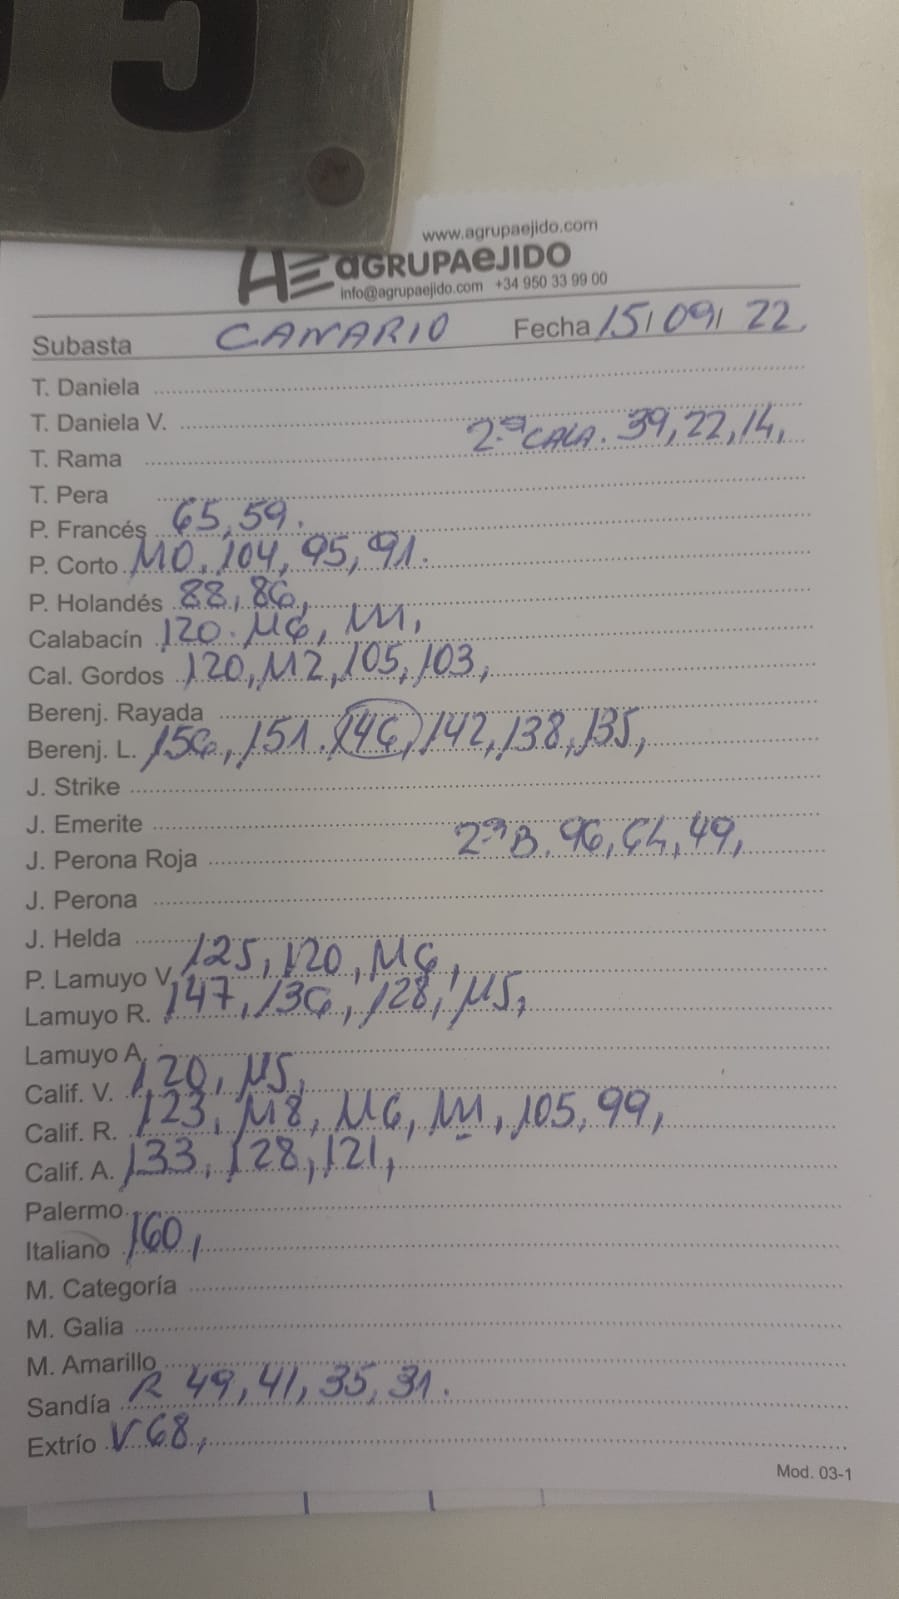 5
www.agrupaejido.com
AGRUPAeJIDO
info@agrupaejido.com +34 950 33 99 00
Subasta CANARIO Fecha 15/09/22,
T. Daniela
T. Daniela V.
T. Rama 2.ª CALA. 39, 22, 14,
T. Pera
P. Francés 65, 59.
P. Corto 110, 104, 95, 91.
P. Holandés 88, 86,
Calabacín 120. 116, 111,
Cal. Gordos 120, 112, 105, 103,
Berenj. Rayada
Berenj. L. 156, 151. 146, 142, 138, 135,
J. Strike
J. Emerite
J. Perona Roja 2.ª B. 96, 64, 49,
J. Perona
J. Helda
P. Lamuyo V. 125, 120, 116,
Lamuyo R. 147, 136, 128, 115,
Lamuyo A.
Calif. V. 120, 115,
Calif. R. 123, 118, 116, 111, 105, 99,
Calif. A. 133, 128, 121,
Palermo
Italiano 160,
M. Categoría
M. Galia
M. Amarillo
Sandía R 49, 41, 35, 31.
Extrío V 68,
Mod. 03-1